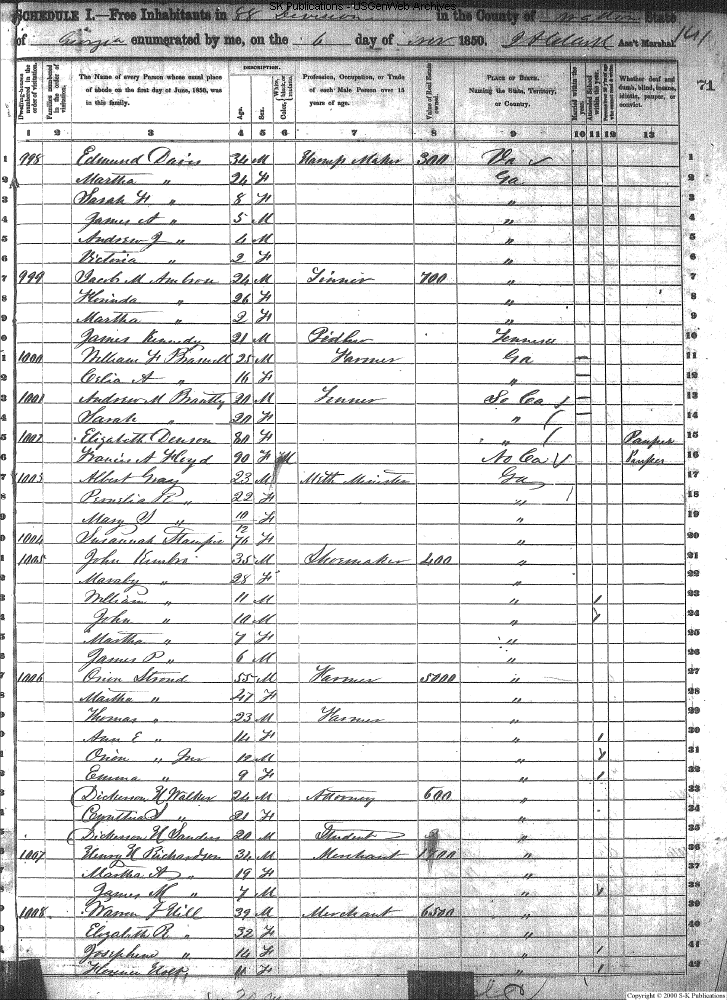 SK Publications - USGenWeb Archives
SCHEDULE I.—Free Inhabitants in 88 Division in the County of Walton State
of Georgia enumerated by me, on the 6 day of Nov 1850. Ass't Marshal. 141
71
Dwelling-houses numbered in the order of visitation.
Families numbered in the order of visitation.
The Name of every Person whose usual place of abode on the first day of June, 1850, was in this family.
DESCRIPTION.
Age.
Sex.
Color, White, black, or mulatto.
Profession, Occupation, or Trade of each Male Person over 15 years of age.
Value of Real Estate owned.
PLACE OF BIRTH. Naming the State, Territory, or Country.
Married within the year.
Attended School within the year.
Whether deaf and dumb, blind, insane, idiotic, pauper, or convict.
1 2 3 4 5 6 7 8 9 10 11 12 13
1 998 Edmund Davis 34 M 300 Va 1
2 Martha " 24 F Ga 2
3 Sarah F " 8 F " 3
4 James A " 5 M " 4
5 Andrew J " 4 M " 5
6 Victoria " 2 F " 6
7 999 Jacob M 24 M Tinner 700 " 7
8 " 26 F " 8
9 Martha " 2 F " 9
10 James Kennedy 21 M Pedler Tennessee 10
11 1000 William F Braswell 25 M Farmer Ga 11
12 Celia A " 16 F " 12
13 1001 Andrew M Brantly 20 M Tinner So Ca 13
14 Sarah " 20 F " 14
15 1002 Elizabeth Denson 80 F " Pauper 15
16 Francis A Floyd 90 F M No Ca Pauper 16
17 1003 Albert Gray 23 M Meth Minister Ga 17
18 Permelia R " 22 F " 18
19 Mary S " 10/12 F " 19
20 1004 Susannah 76 F " 20
21 1005 John Kimbro 35 M Shoemaker 400 " 21
22 " 28 F " 22
23 William " 11 M " / 23
24 John " 10 M " / 24
25 Martha " 7 F " 25
26 James P " 6 M " 26
27 1006 Orion Stroud 55 M Farmer 5000 " 27
28 Martha " 47 F " 28
29 Thomas " 23 M Farmer " 29
30 Ann E " 14 F " / 30
31 Orion " Jnr 12 M " / 31
32 Emma " 9 F " / 32
33 Dickerson H Walker 24 M Attorney 600 " 33
34 Cynthia S " 21 F " 34
35 Dickerson H Sanders 20 M Student " 35
36 1007 Henry H Richardson 34 M Merchant " 36
37 Martha A " 19 F " 37
38 James M " 7 M " / 38
39 1008 Warren J Hill 39 M Merchant 6500 " 39
40 Elizabeth R " 32 F " 40
41 Josephine " 14 F " / 41
42 Florence 11 F " / 42
Copyright © 2000 S-K Publications